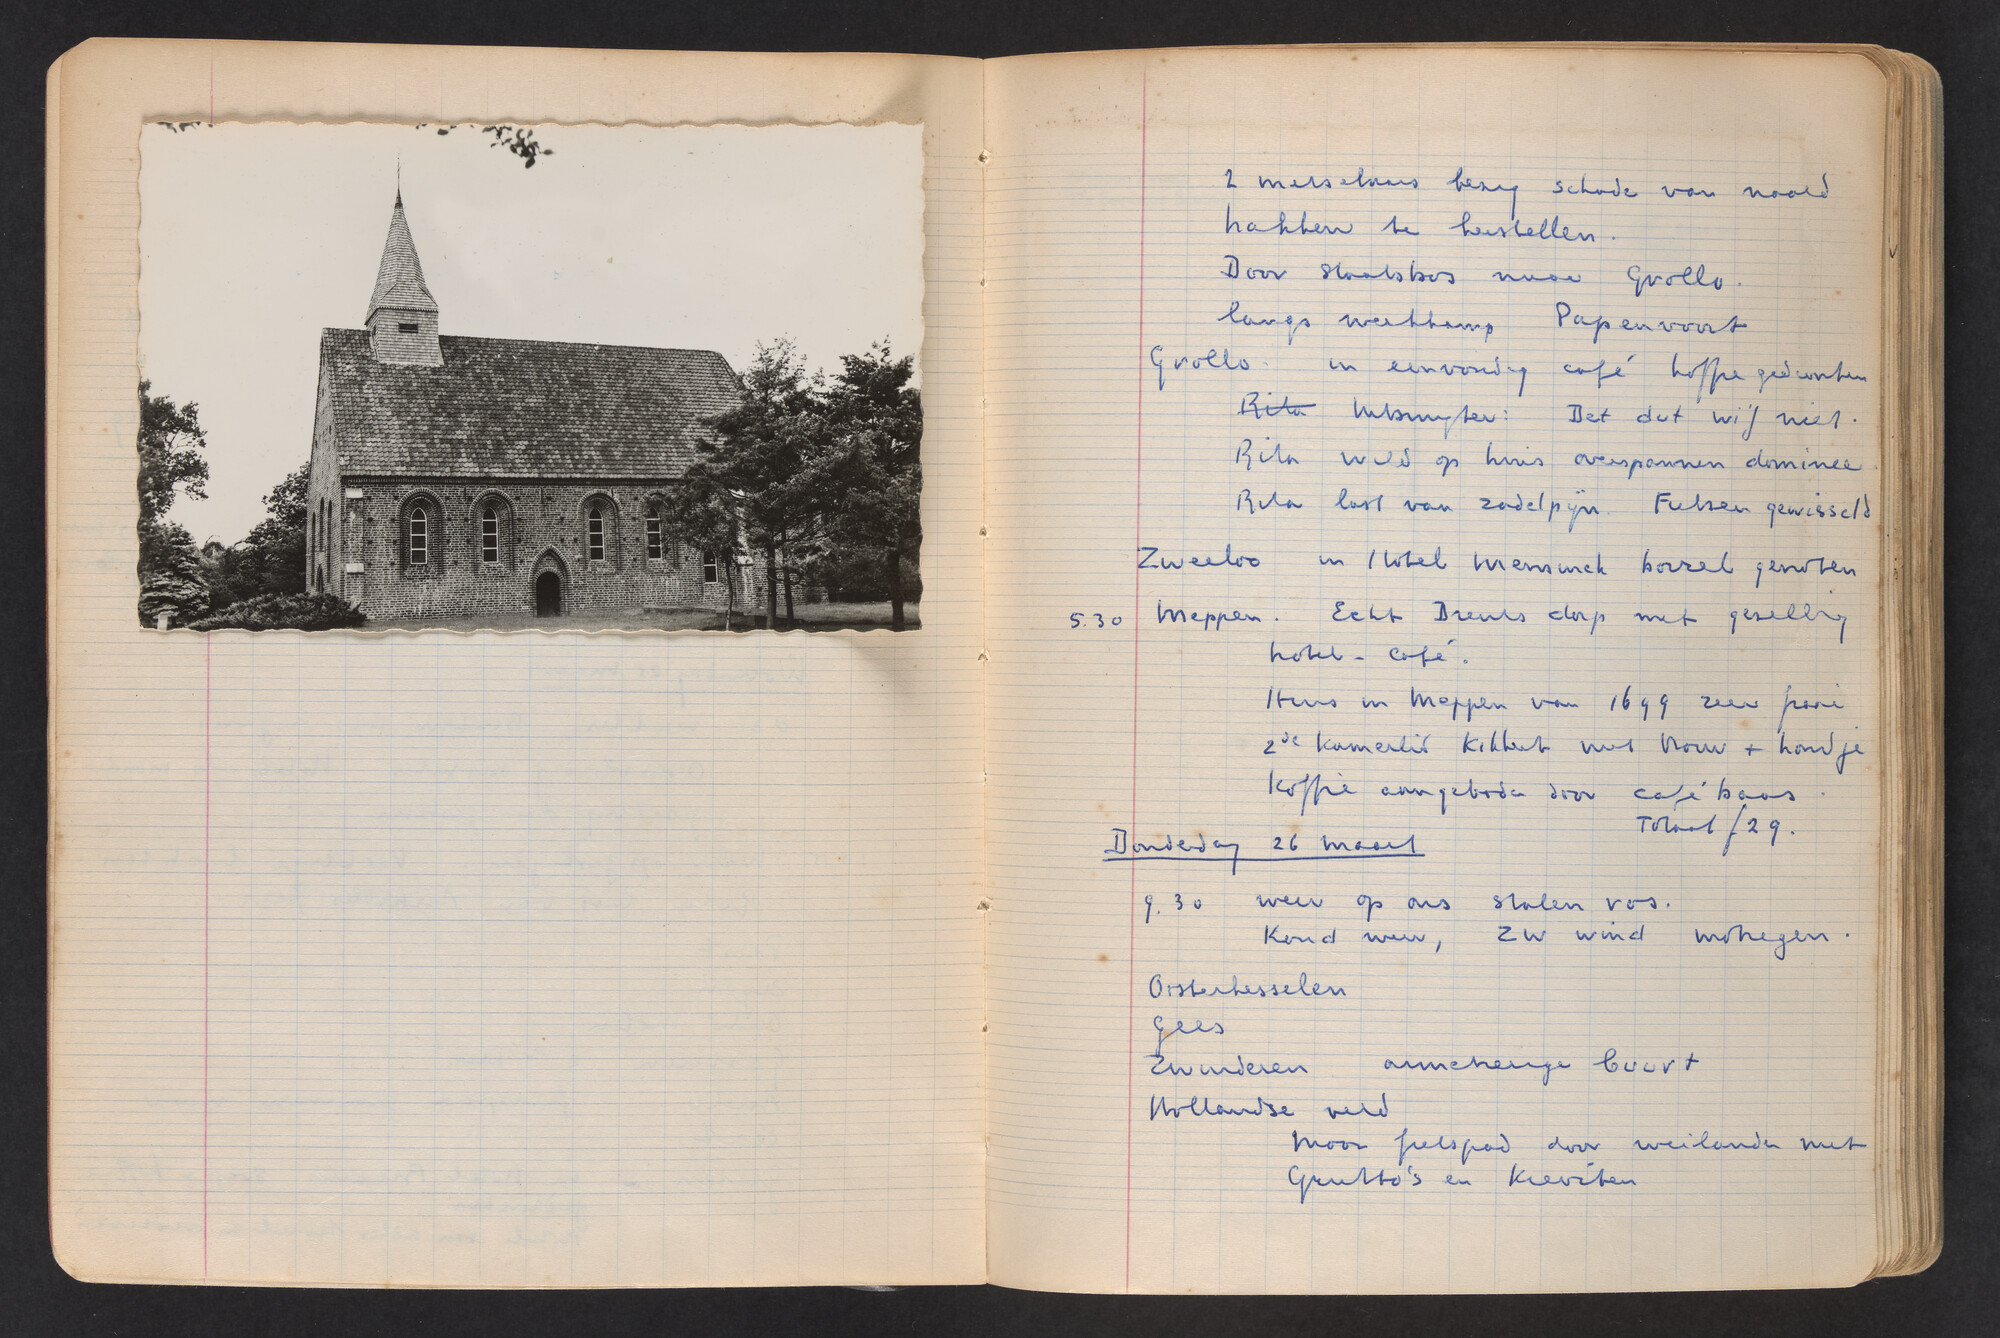 2 metselaars bezig schade van naald
hakken te herstellen.
Door staatsbos naar Grollo.
langs werkkamp Papenvoort
Grollo. in eenvoudig café koffie gedronken
Rita : Det dut wij niet.
Rita wild op huis overspannen dominee.
Rita last van zadelpijn. Fietsen gewisseld
Zweeloo in Hotel Mensinck borrel genoten
5.30 Meppen. Echt Drents dorp met gezellig
hotel-café.
Huis in Meppen van 1699 zeer fraai
2de Kamerlid Kikkert met vrouw + hondje
Koffie aangeboden door café baas.
Totaal f 29.
Donderdag 26 maart
9.30 weer op ons stalen ros.
Koud weer, ZW wind motregen.
Oosterhesselen
Gees
Zwinderen armetierige buurt
Hollandse veld
Mooi fietspad door weilanden met
Grutto's en Kieviten